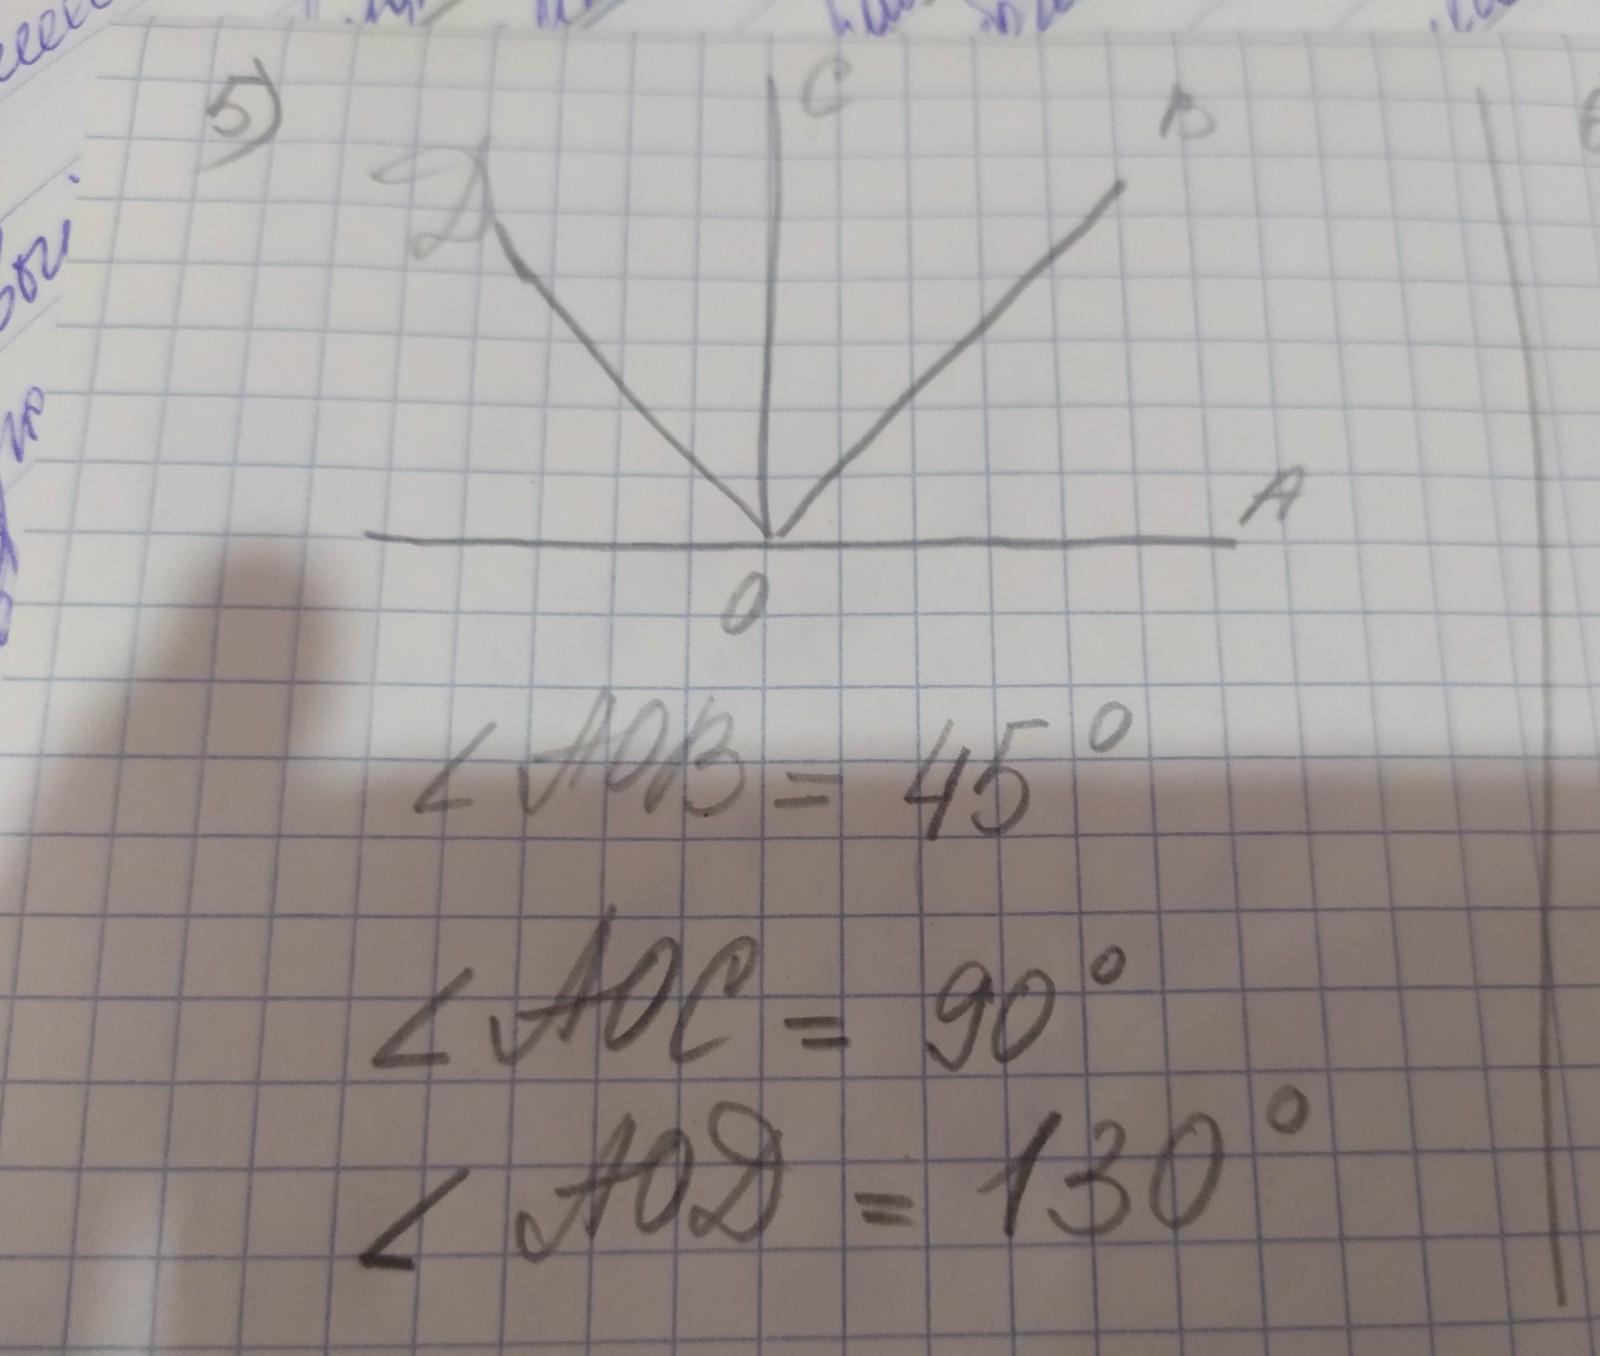 5)
C
B
D
A
O
∠AOB = 45°
∠AOC = 90°
∠AOD = 130°